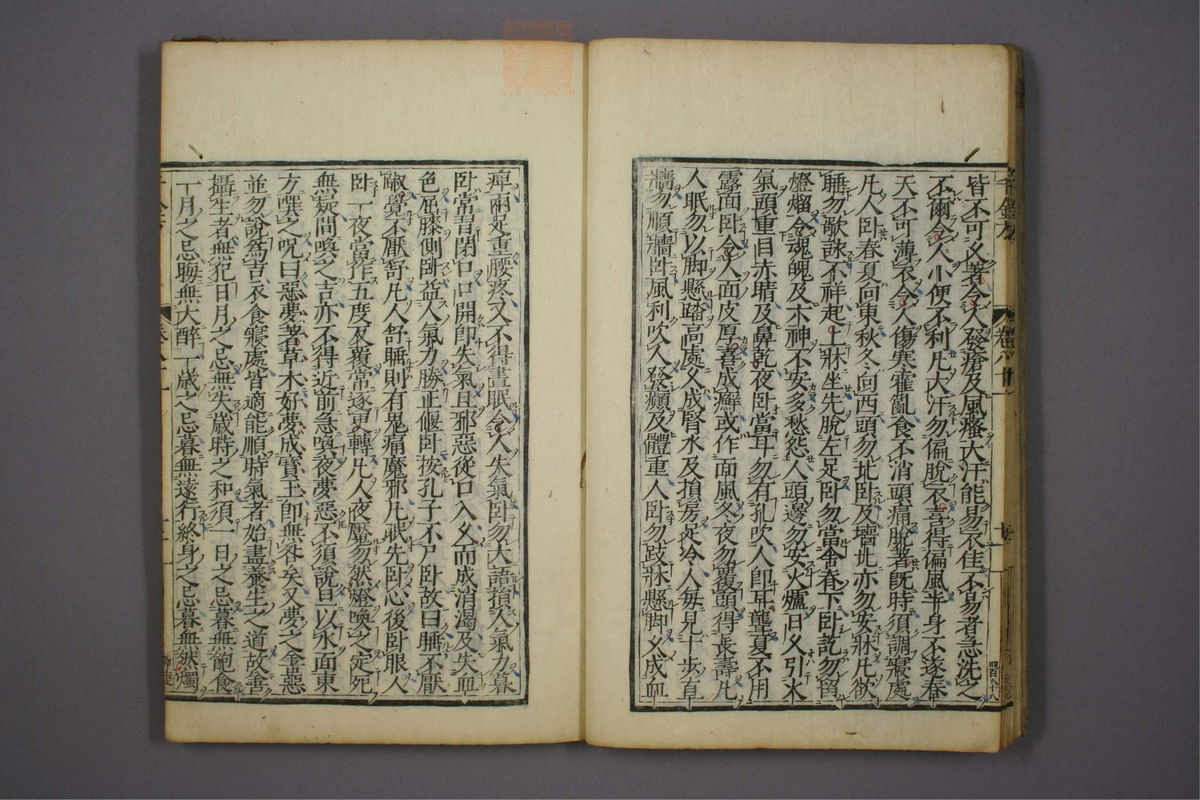 皆不可乆著令人發瘡及風瘙大汗能易衣佳不易者急洗之
不爾令人小便不利凡大汗勿偏脫衣喜得偏風半身不遂春
天不可薄衣令人傷寒霍亂食不消頭痛脫著旣時須調寢處
凡人卧春夏向東秋冬向西頭勿北卧及墻北亦勿安牀凡欲
睡勿歌詠不祥起上牀坐先脫左足卧勿當舍春下卧訖勿留
燈燭令魂魄及六神不安多愁怨人頭邊勿安火爐日乆引火
氣頭重目赤睛及鼻乾夜卧當耳勿有孔吹人即耳聾夏不用
露面卧令人面皮厚喜成癬或作面風冬夜勿覆頭得長壽凡
人眠勿以脚懸踏高處乆成腎水及損房足冷人每見十步直
牆勿順牆卧風利吹人發癲及體重人卧勿跂牀懸脚乆成血
千金方
卷八十一
痺兩足重腰疼又不得晝眠令人失氣卧勿大語損人氣力暮
卧常習閉口口開即失氣且邪惡從口入乆而成消渴及失血
色屈膝側卧益人氣力勝正偃卧按孔子不尸卧故曰睡不厭
踧覺不厭舒凡人舒睡則有鬼痛魔邪凡眠先卧心後卧眼人
卧一夜當作五度反覆常逐更轉凡人夜魘勿然燈喚之定死
無疑間喚之吉亦不得近前急喚夜夢惡不須說旦以水面東
方噀之呪曰惡夢著草木好夢成寶玉即無咎矣又夢之善惡
並勿說爲吉衣食寢處皆適能順時氣者始盡養生之道故善
攝生者無犯日月之忌無失歲時之和須一日之忌暮無飽食
一月之忌晦無大醉一歲之忌暮無遠行終身之忌暮無然燭